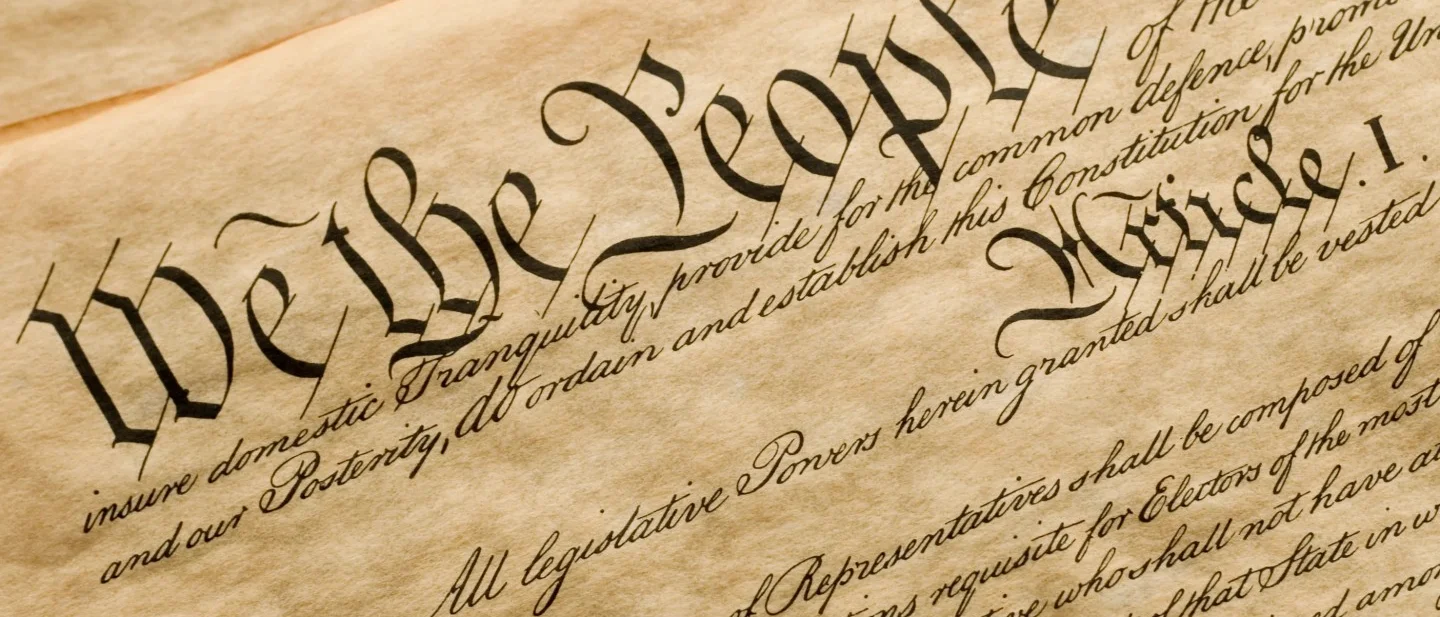 We the People of the
insure domestic Tranquility, provide for the common defence, promo
and our Posterity, do ordain and establish this Constitution for the Un
Article. I.
All legislative Powers herein granted shall be vested
of Representatives shall be composed of
requisite for Electors of the most
who shall not have
of that State in